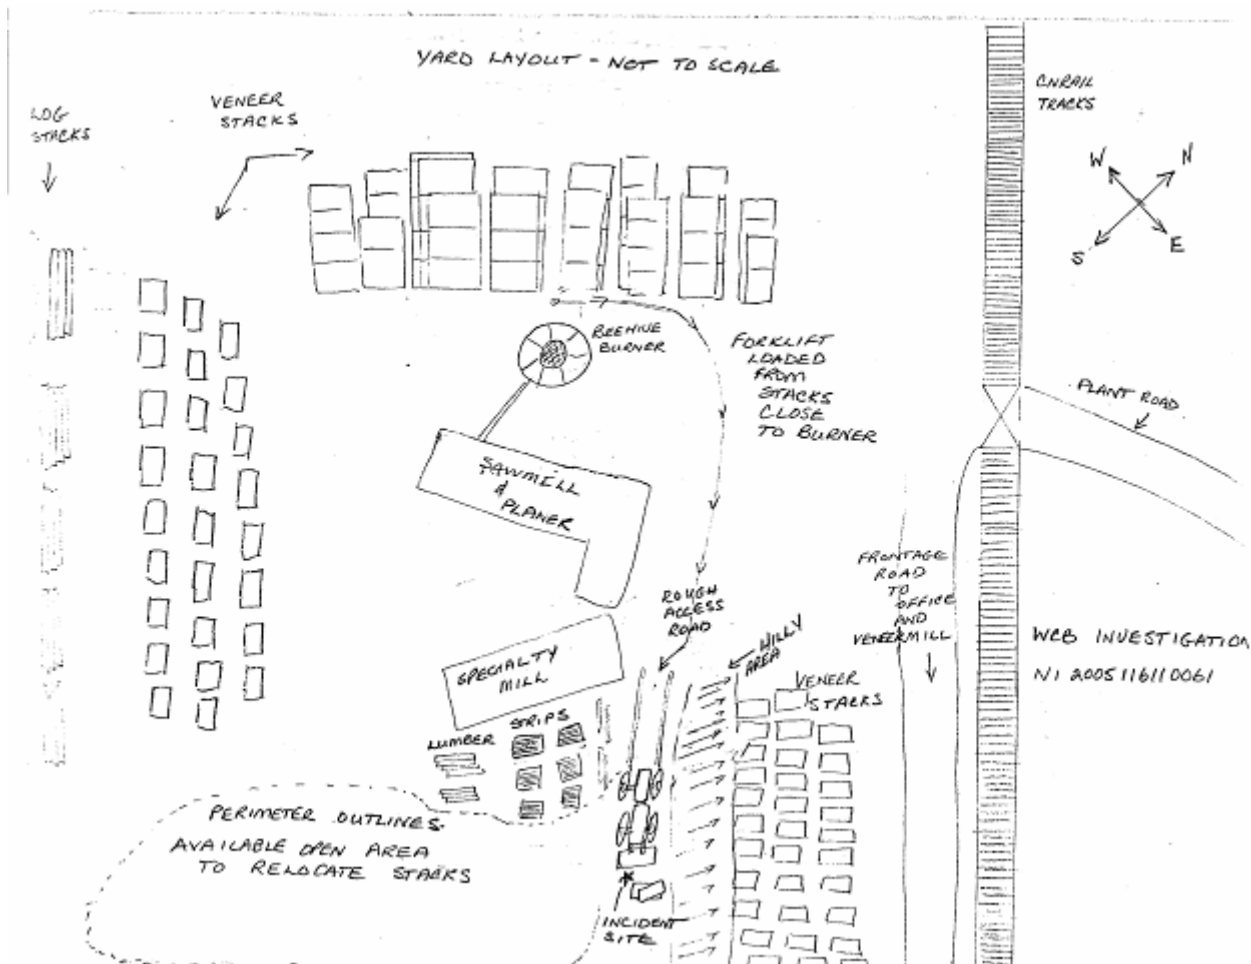 YARD LAYOUT - NOT TO SCALE
LOG
STACKS
VENEER
STACKS
CNRAIL
TRACKS
W
N
S
E
BEEHIVE
BURNER
FORKLIFT
LOADED
FROM
STACKS
CLOSE
TO BURNER
PLANT ROAD
SAWMILL
&
PLANER
FRONTAGE
ROAD
TO
OFFICE
AND
VENEERMILL
ROUGH
ACCESS
ROAD
HILLY
AREA
WCB INVESTIGATION
NI 2005116110061
SPECIALTY
MILL
VENEER
STACKS
LUMBER
STRIPS
PERIMETER OUTLINES
AVAILABLE OPEN AREA
TO RELOCATE STACKS
INCIDENT
SITE